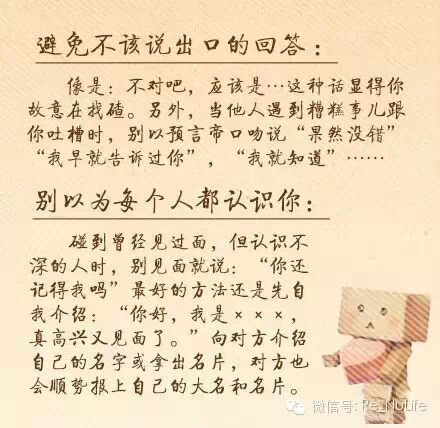 避免不该说出口的回答：
像是：不对吧，应该是…这种话显得你
故意在找碴。另外，当他人遇到糟糕事儿跟
你吐槽时，别以预言帝口吻说“果然没错”
“我早就告诉过你”，“我就知道”……
别以为每个人都认识你：
碰到曾经见过面，但认识不
深的人时，别见面就说：“你还
记得我吗”最好的方法还是先自
我介绍：“你好，我是×××，
真高兴又见面了。”向对方介绍
自己的名字或拿出名片，对方也
会顺势报上自己的大名和名片。
微信号: Re_NuLife